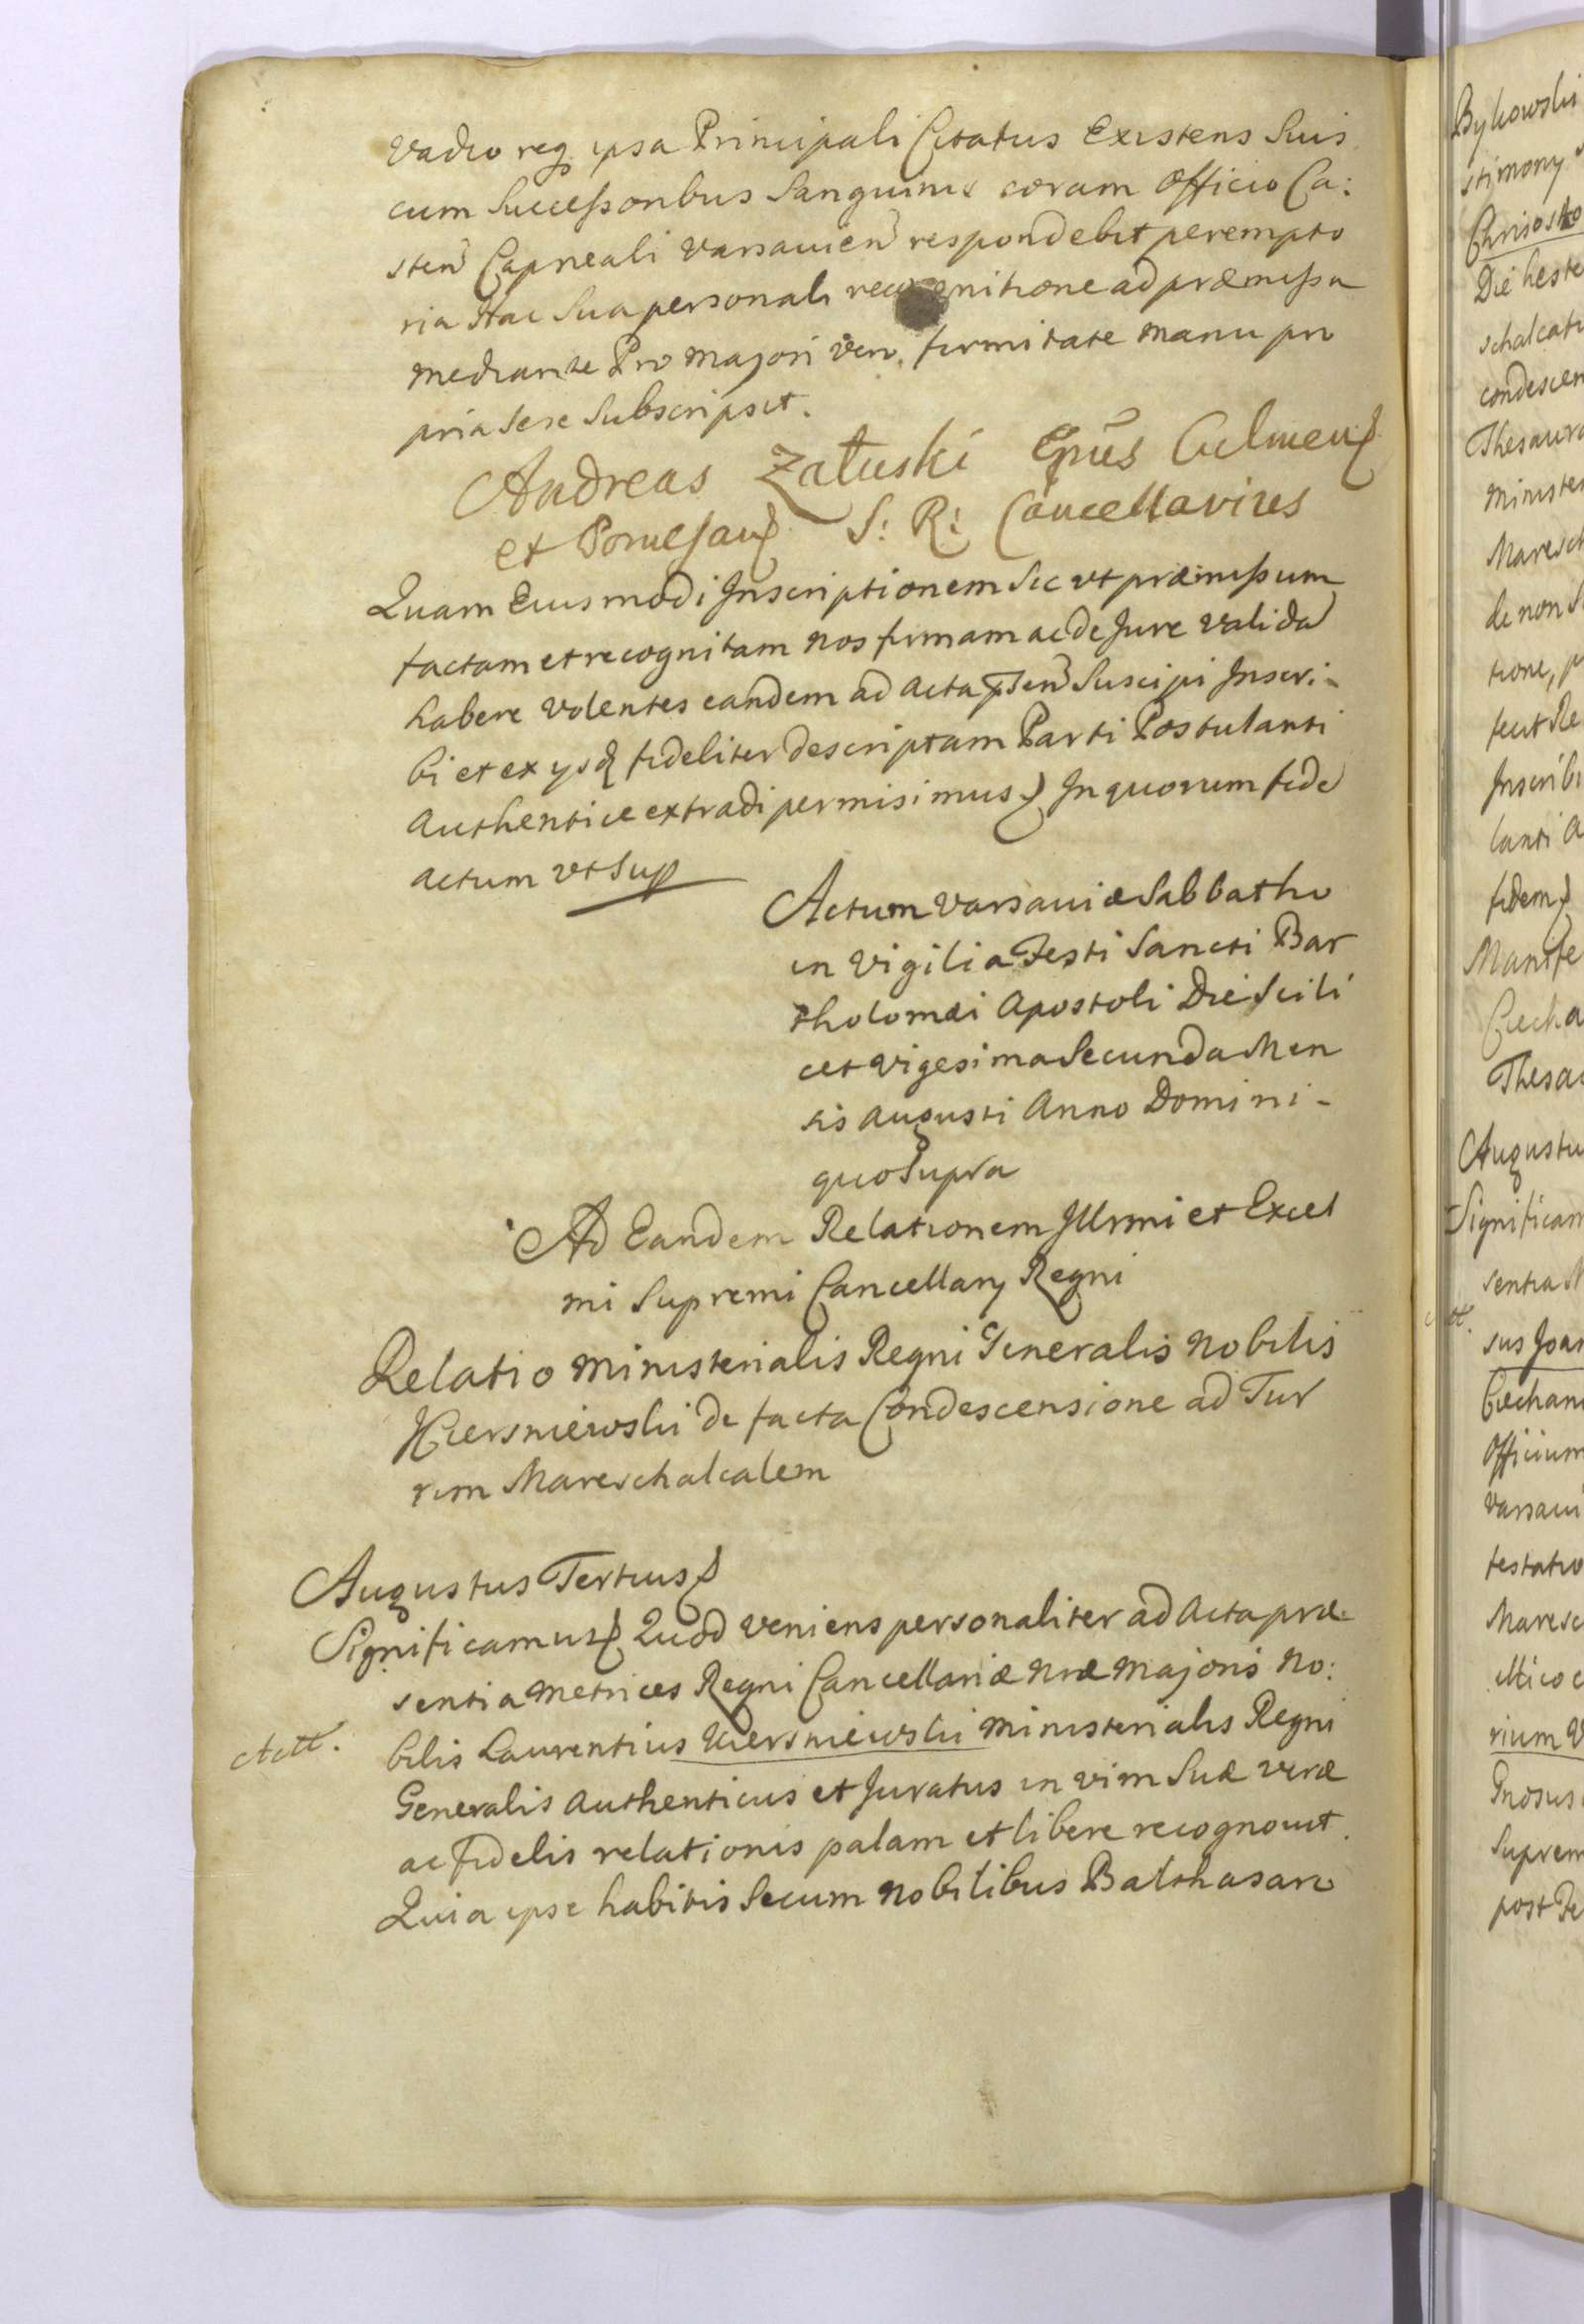 Vadio req ipsa Principali Citatus Existens Suis
cum Successoribus Sanguinis coram Officio Ca:
sten Capneali Varsavien respondebit perempto
ria Hac Sua personali recognitione ad præmissa
mediante Pro Majori Vero. firmitate manu pro
pria sese Subscripsit.
Andreas Załuski Epũs Culmens
et Pomesans S: R: Cancellarius
Quam Eiusmodi Inscriptionem Sic ut præmissum
factam et recognitam nos firmam ac de Jure valida
habere volentes eandem ad Acta pñsen Suscipi Inscri-
bi et ex ysq fideliter descriptam Parti Postulanti
Authentice extradi permisimus In quorum fide
actum ut Sup
Actum Varsaviæ Sabbatho
in Vigilia Festi Sancti Bar
tholomæi Apostoli Die Scili
cet Vigesima Secunda Men
sis Augusti Anno Domini-
quo Supra
Ad Eandem Relationem Jllrmi et Excel
mi Supremi Cancellarij Regni
Relatio Ministerialis Regni Generalis Nobilis
Kiersniewski de facta Condescensione ad Tur
rim Mareschalcalem
Augustus Tertius
Significamus Quod veniens personaliter ad Acta præ-
sentia Metrices Regni Cancellariæ Nræ Majoris No:
bilis Laurentius Kiersniewski Ministerialis Regni
Actt.
Generalis Authenticus et Juratus in vim Suæ veræ
ac fidelis relationis palam et libere recognovit.
Quia ipse habitis Secum Nobilibus Balthasaro
Bykowski
stimony
Chrisosto
Die heste
schalcati
condescen
Thesaura
Minister
Maresch
de non S
tione, p
fecit Re
Inscribi
lanti A
fidem
Manife
Ciecha
Thesau
Augustu
Significam
sentia M
sus Joan
Ciechan
Officium
Varsavi
testatio
Maresc
rium V
Gnosus
Suprem
post Fe